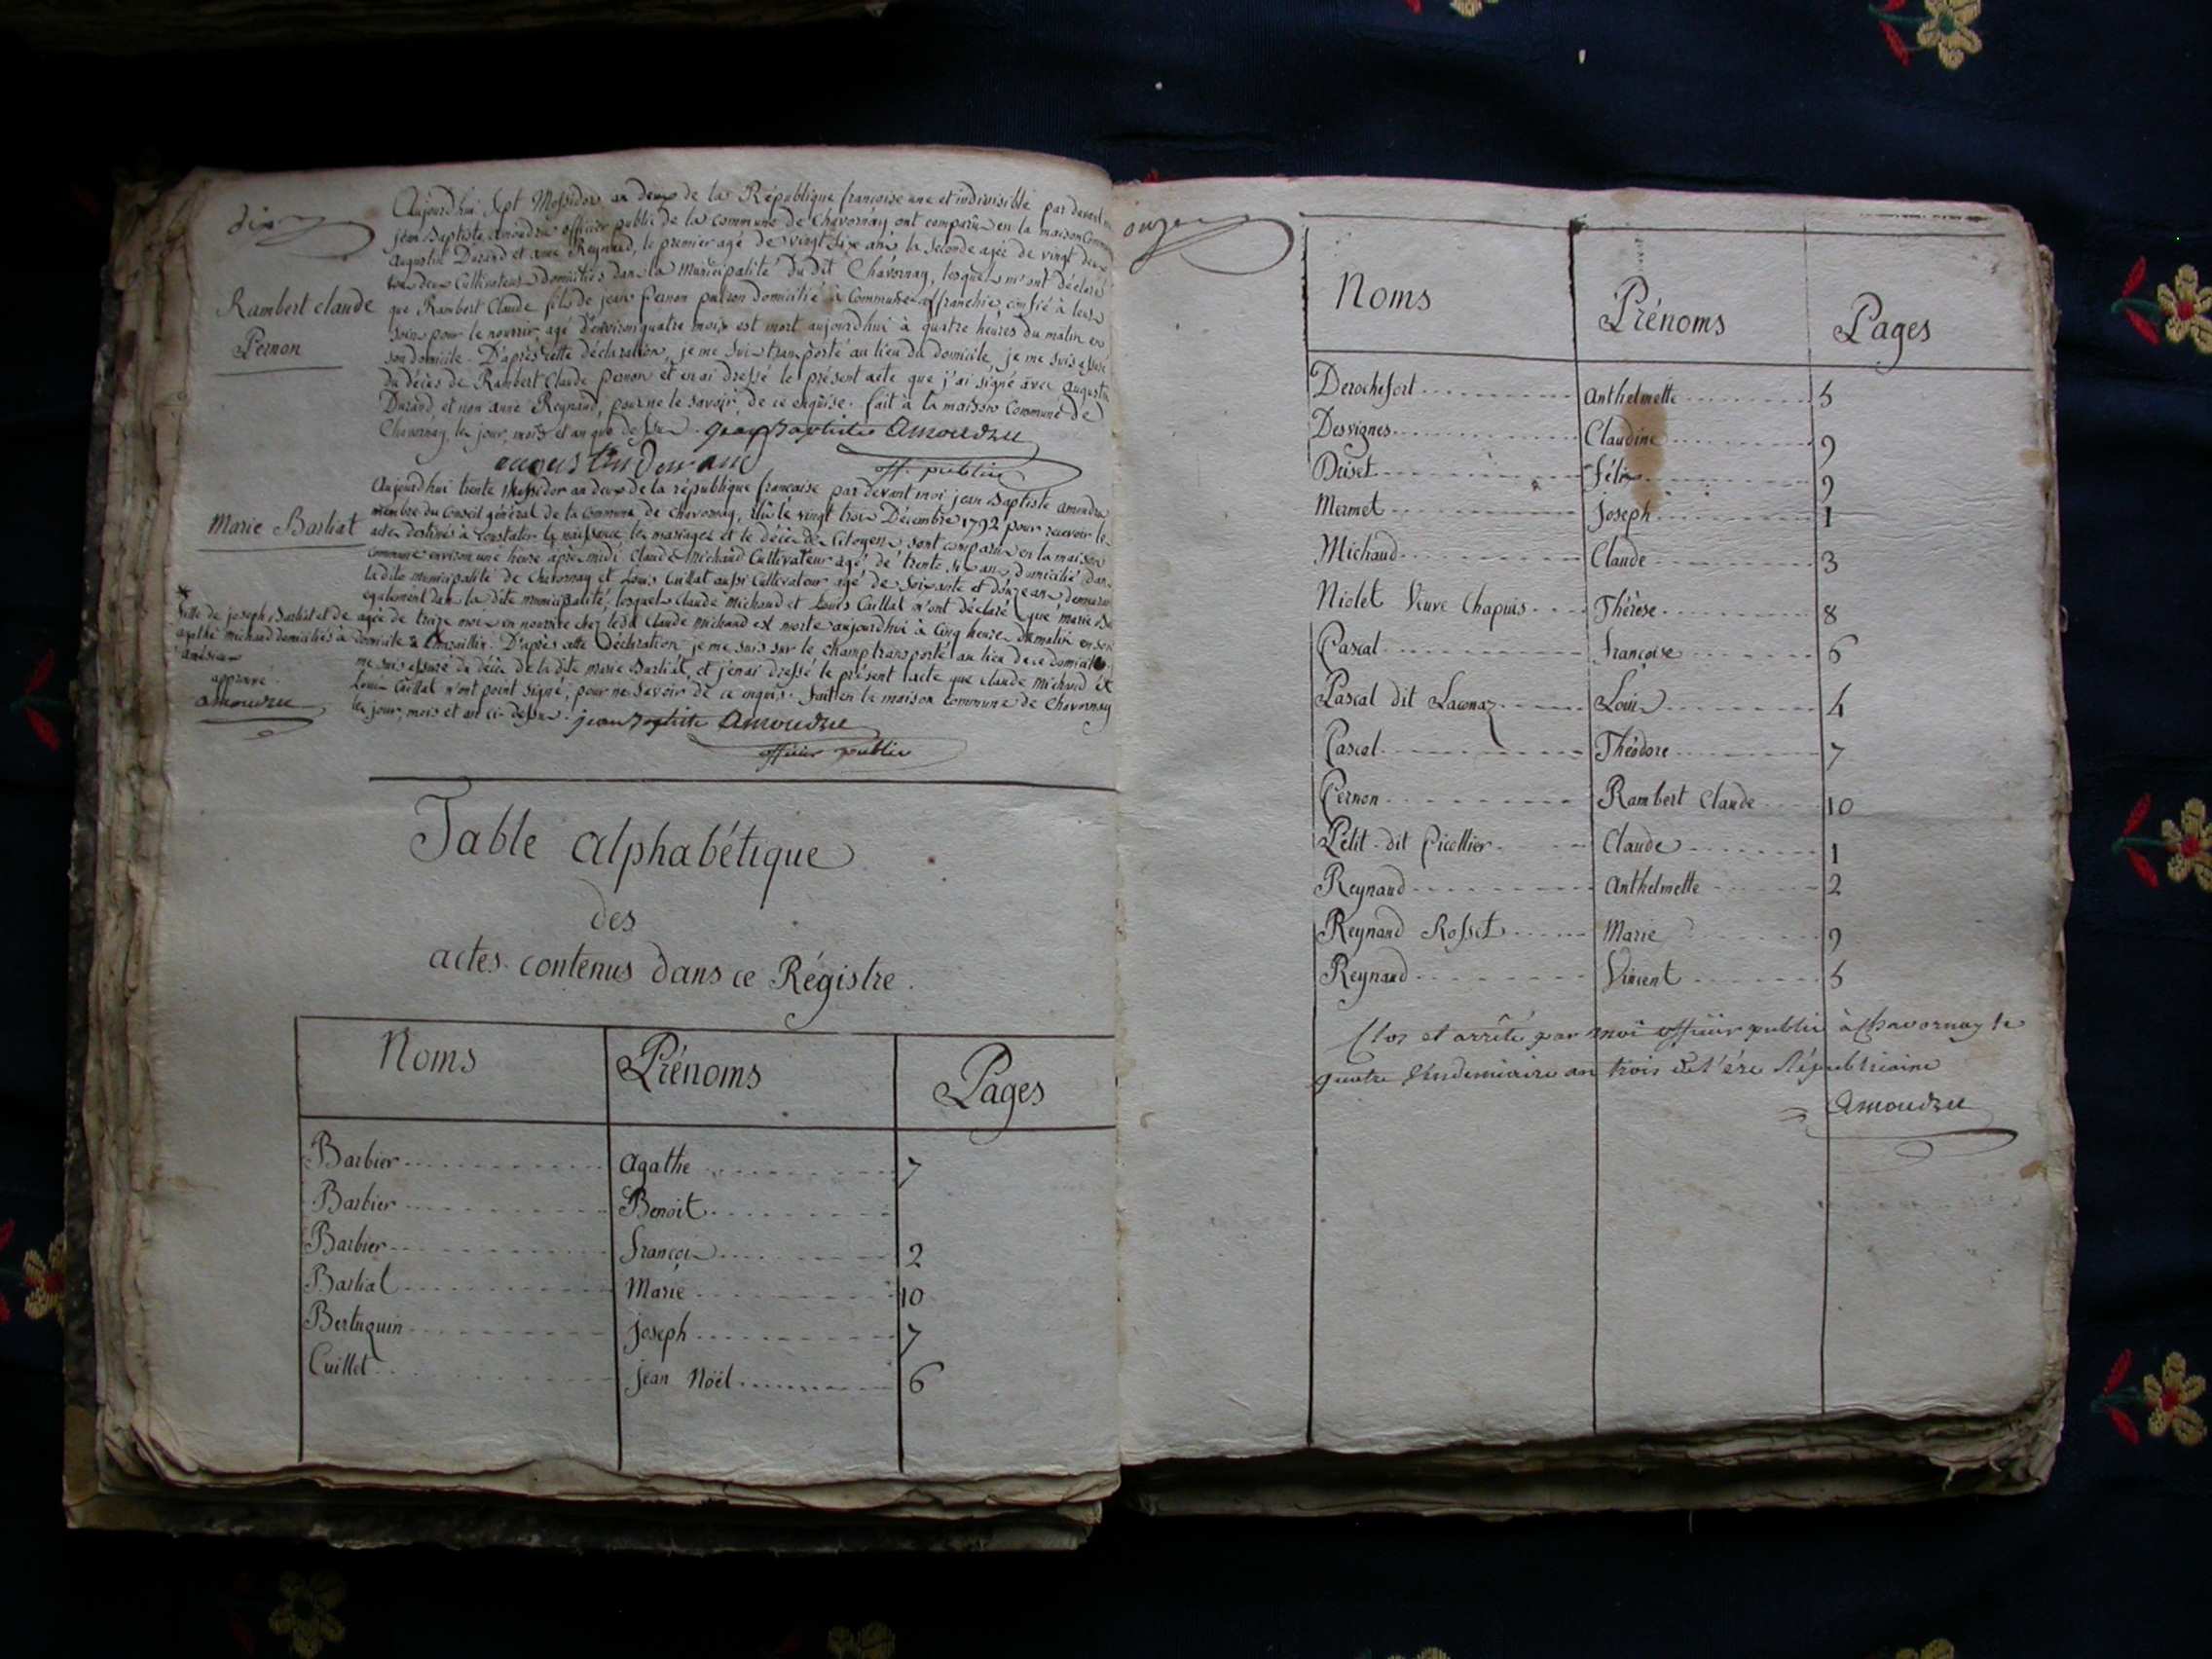 dix
Aujourd'hui sept Messidor an deux de la République françoise une et indivisible par devant
jean Baptiste amoudru officier public de la commune de Chavornay, ont comparû en la maison Commune
Augustin Durand et anne Reynaud, le premier agé de vingt six ans la seconde agée de vingt deux
tous deux Cultivateurs Domiciliés dans la Municipalité du dit Chavornay, lesquels m'ont déclaré
Rambert claude
Pernon
que Rambert Claude fils de jean Pernon patron domicilié à Commune affranchie, confié à leurs
soins pour le nourrir, agé d'environ quatre mois est mort aujourd'hui à quatre heures du matin en
son domicile. D'après cette déclaration, je me suis transporté au lieu du domicile, je me suis assuré
du décès de Rambert Claude Pernon et en ai dressé le présent acte que j'ai signé avec Augustin
Durand, et non anne Reynaud, pour ne le savoir, de ce enquise. fait à la maison Commune de
Chavornay, les jour, mois et an que dessus. jean baptiste Amoudru
augustin durand off. public
Aujourd'hui trente Messidor an deux de la république françoise par devant moi jean Baptiste amoudru
membre du Conseil général de la Commune de Chavornay, élû le vingt trois Décembre 1792 pour recevoir les
Marie Barliat
actes destinés à Constater la naissance, les mariages et le décès des Citoyens sont comparus en la maison
Commune environ une heure après midi Claude Michaud Cultivateur agé de trente six ans, domicilié dans
la dite municipalité de Chavornay et Louis Cuillat aussi Cultivateur agé de soixante et douze ans demeurant
egalement dans la dite municipalité, lesquels Claude Michaud et Louis Cuillat m'ont déclaré que marie
fille de joseph Barliat et de
agathe michaud domiciliés à
approuvé
amoudru
agée de treize mois en nourrice chez ledit Claude michaud est morte aujourd'hui à Cinq heures du matin en son
domicile à Charaillin. D'après cette Déclaration je me suis sur le champ transporté au lieu de ce domicile
me suis assuré du décès de la dite marie Barliat, et j'en ai dressé le présent acte que Claude Michaud et
Louis Cuillat n'ont point signé, pour ne savoir de ce enquis. fait en la maison Commune de Chavornay
les jour, mois et an ci-dessus. jean baptiste Amoudru
officier public
Table alphabétique
des
actes contenus dans ce Régistre.
Noms Prénoms Pages
Barbier agathe 7
Barbier Benoit
Barbier françois 2
Barliat Marie 10
Bertuquin joseph 7
Cuillet jean Noël 6
onze
Noms Prénoms Pages
Derochefort anthelmette 5
Desvignes Claudine 9
Duiset félix 9
Mermet joseph 1
Michaud Claude 3
Niolet Veuve Chapuis Thérèse 8
Pascal françoise 6
Pascal dit Laconaz Louis 4
Pascal Théodore 7
Pernon Rambert Claude 10
Petit-dit Picollier Claude 1
Reynaud anthelmette 2
Reynaud Rosset Marie 9
Reynaud Vincent 5
Clos et arrêté par moi officier public à Chavornay le
quatre Vendemiaire an trois de l'ére Républicaine
Amoudru